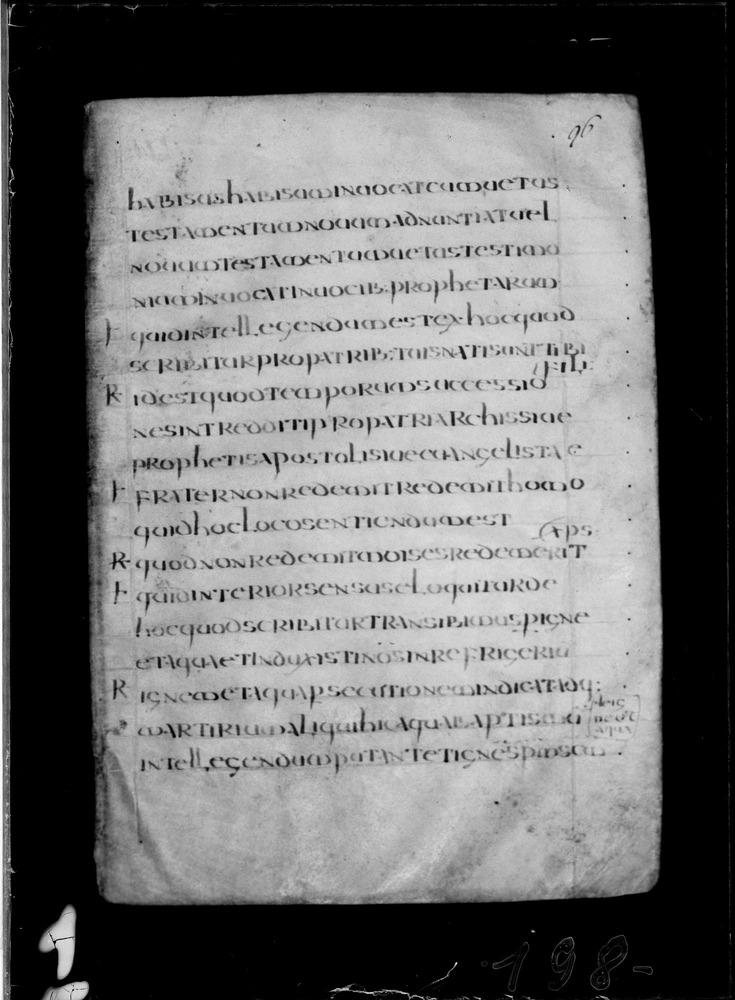 96
habissus habissum inuocat cum uetus
testamentum nouum adnuntiat uel
nouum testamentum uetus testimo
nium inuocat in uocib: prophetarum
I quid intellegendum est ex hoc quod
scribitur pro patrib: tuis nati sunt tibi
filii
R id est quod temporum successio
nes int redditi pro patriarchis siue
prophetis apostoli siue euangelistae
I frater non redemit redemit homo
quid hoc loco sentiendum est
xps
R quod non redemit moises redemerit
I quid interior sensus eloquitur de
hoc quod scribitur transibimus p igne
et aqua et induxisti nos in refrigeriu
R ignem et aqua psecutionem indicat adq:
martirium aliqui hic aqua baptismu
intellegendum putant et igne spm scm
198-